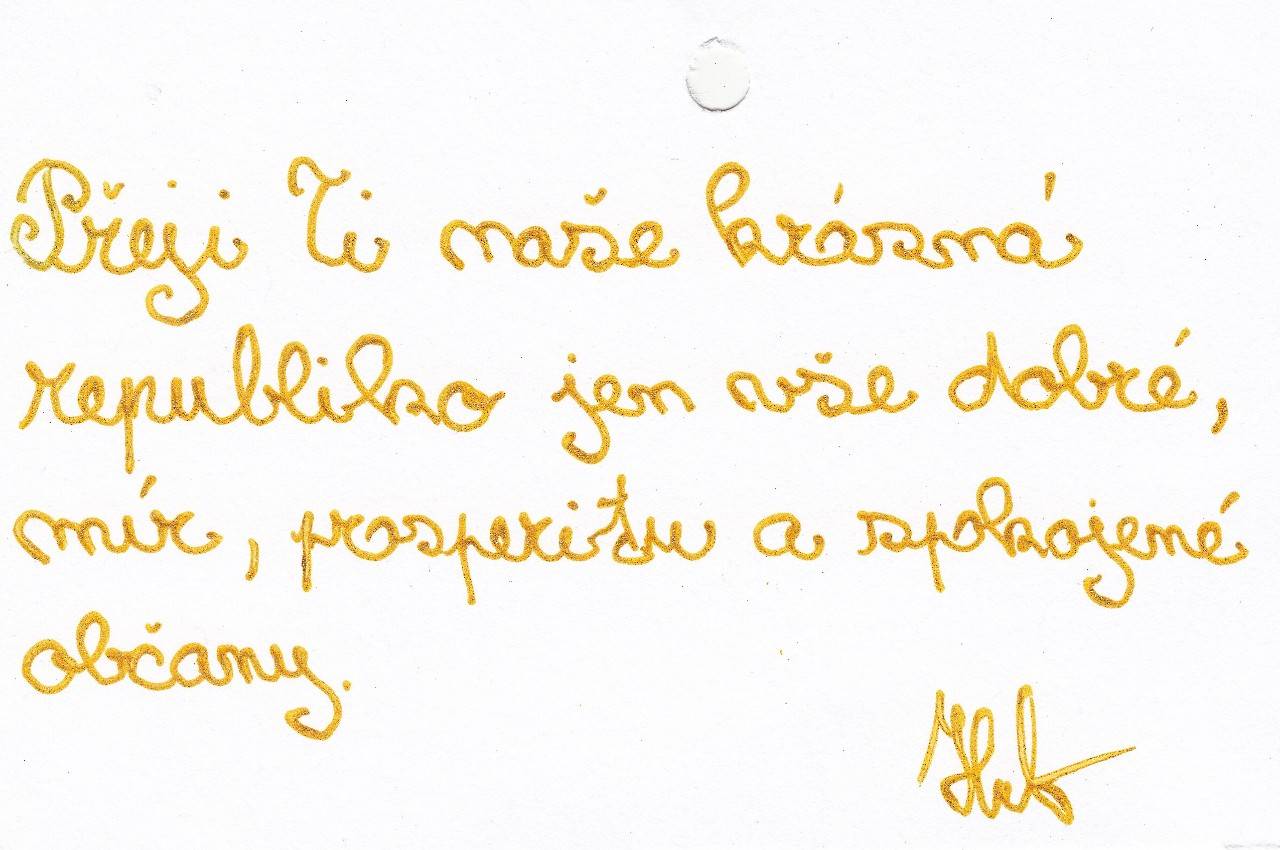 Přeji Ti naše krásná
republiko jen vše dobré,
mír, prosperitu a spokojené
občany.